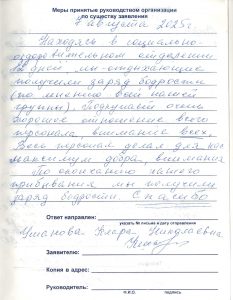 Меры принятые руководством организации
по существу заявления
августа 2025г.
Находясь в социально-
оздоровительном отделении
12 дней мы-отдыхающие
получили заряд бодрости
(по мнению всей нашей
группы). Подкупает очень
хорошее отношение всего
персонала, внимание всех.
Весь персонал делал для нас
максимум добра, внимания
По окончанию нашего
пребывания мы получили
заряд бодрости. Спасибо
Ответ направлен:
указать № письма и дату отправления
Усманова Клара
Заявителю:
Копия в адрес:
Руководитель:
Ф.И.О. подпись